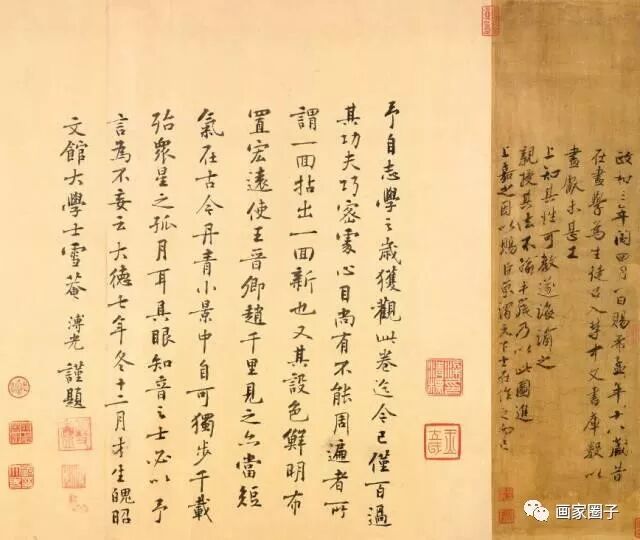 政和三年閏四月一日賜希孟年十八歲昔
在畫學為生徒召入禁中文書庫數以
畫獻未甚工
上知其性可教遂誨諭之
親授其法不踰半歲乃以此圖進
上嘉之因以賜臣京謂天下士在作之而已
予自志學之歲獲觀此卷迄今已僅百過
其功夫巧密處心目尚有不能周遍者所
謂一面拈出一面新也又其設色鮮明布
置宏遠使王晉卿趙千里見之亦當短
氣在古今丹青小景中自可獨步千載
殆眾星之孤月耳具眼知音之士必以予
言為不妄云大德七年冬十二月才生魄昭
文館大學士雪菴溥光謹題
画家圈子